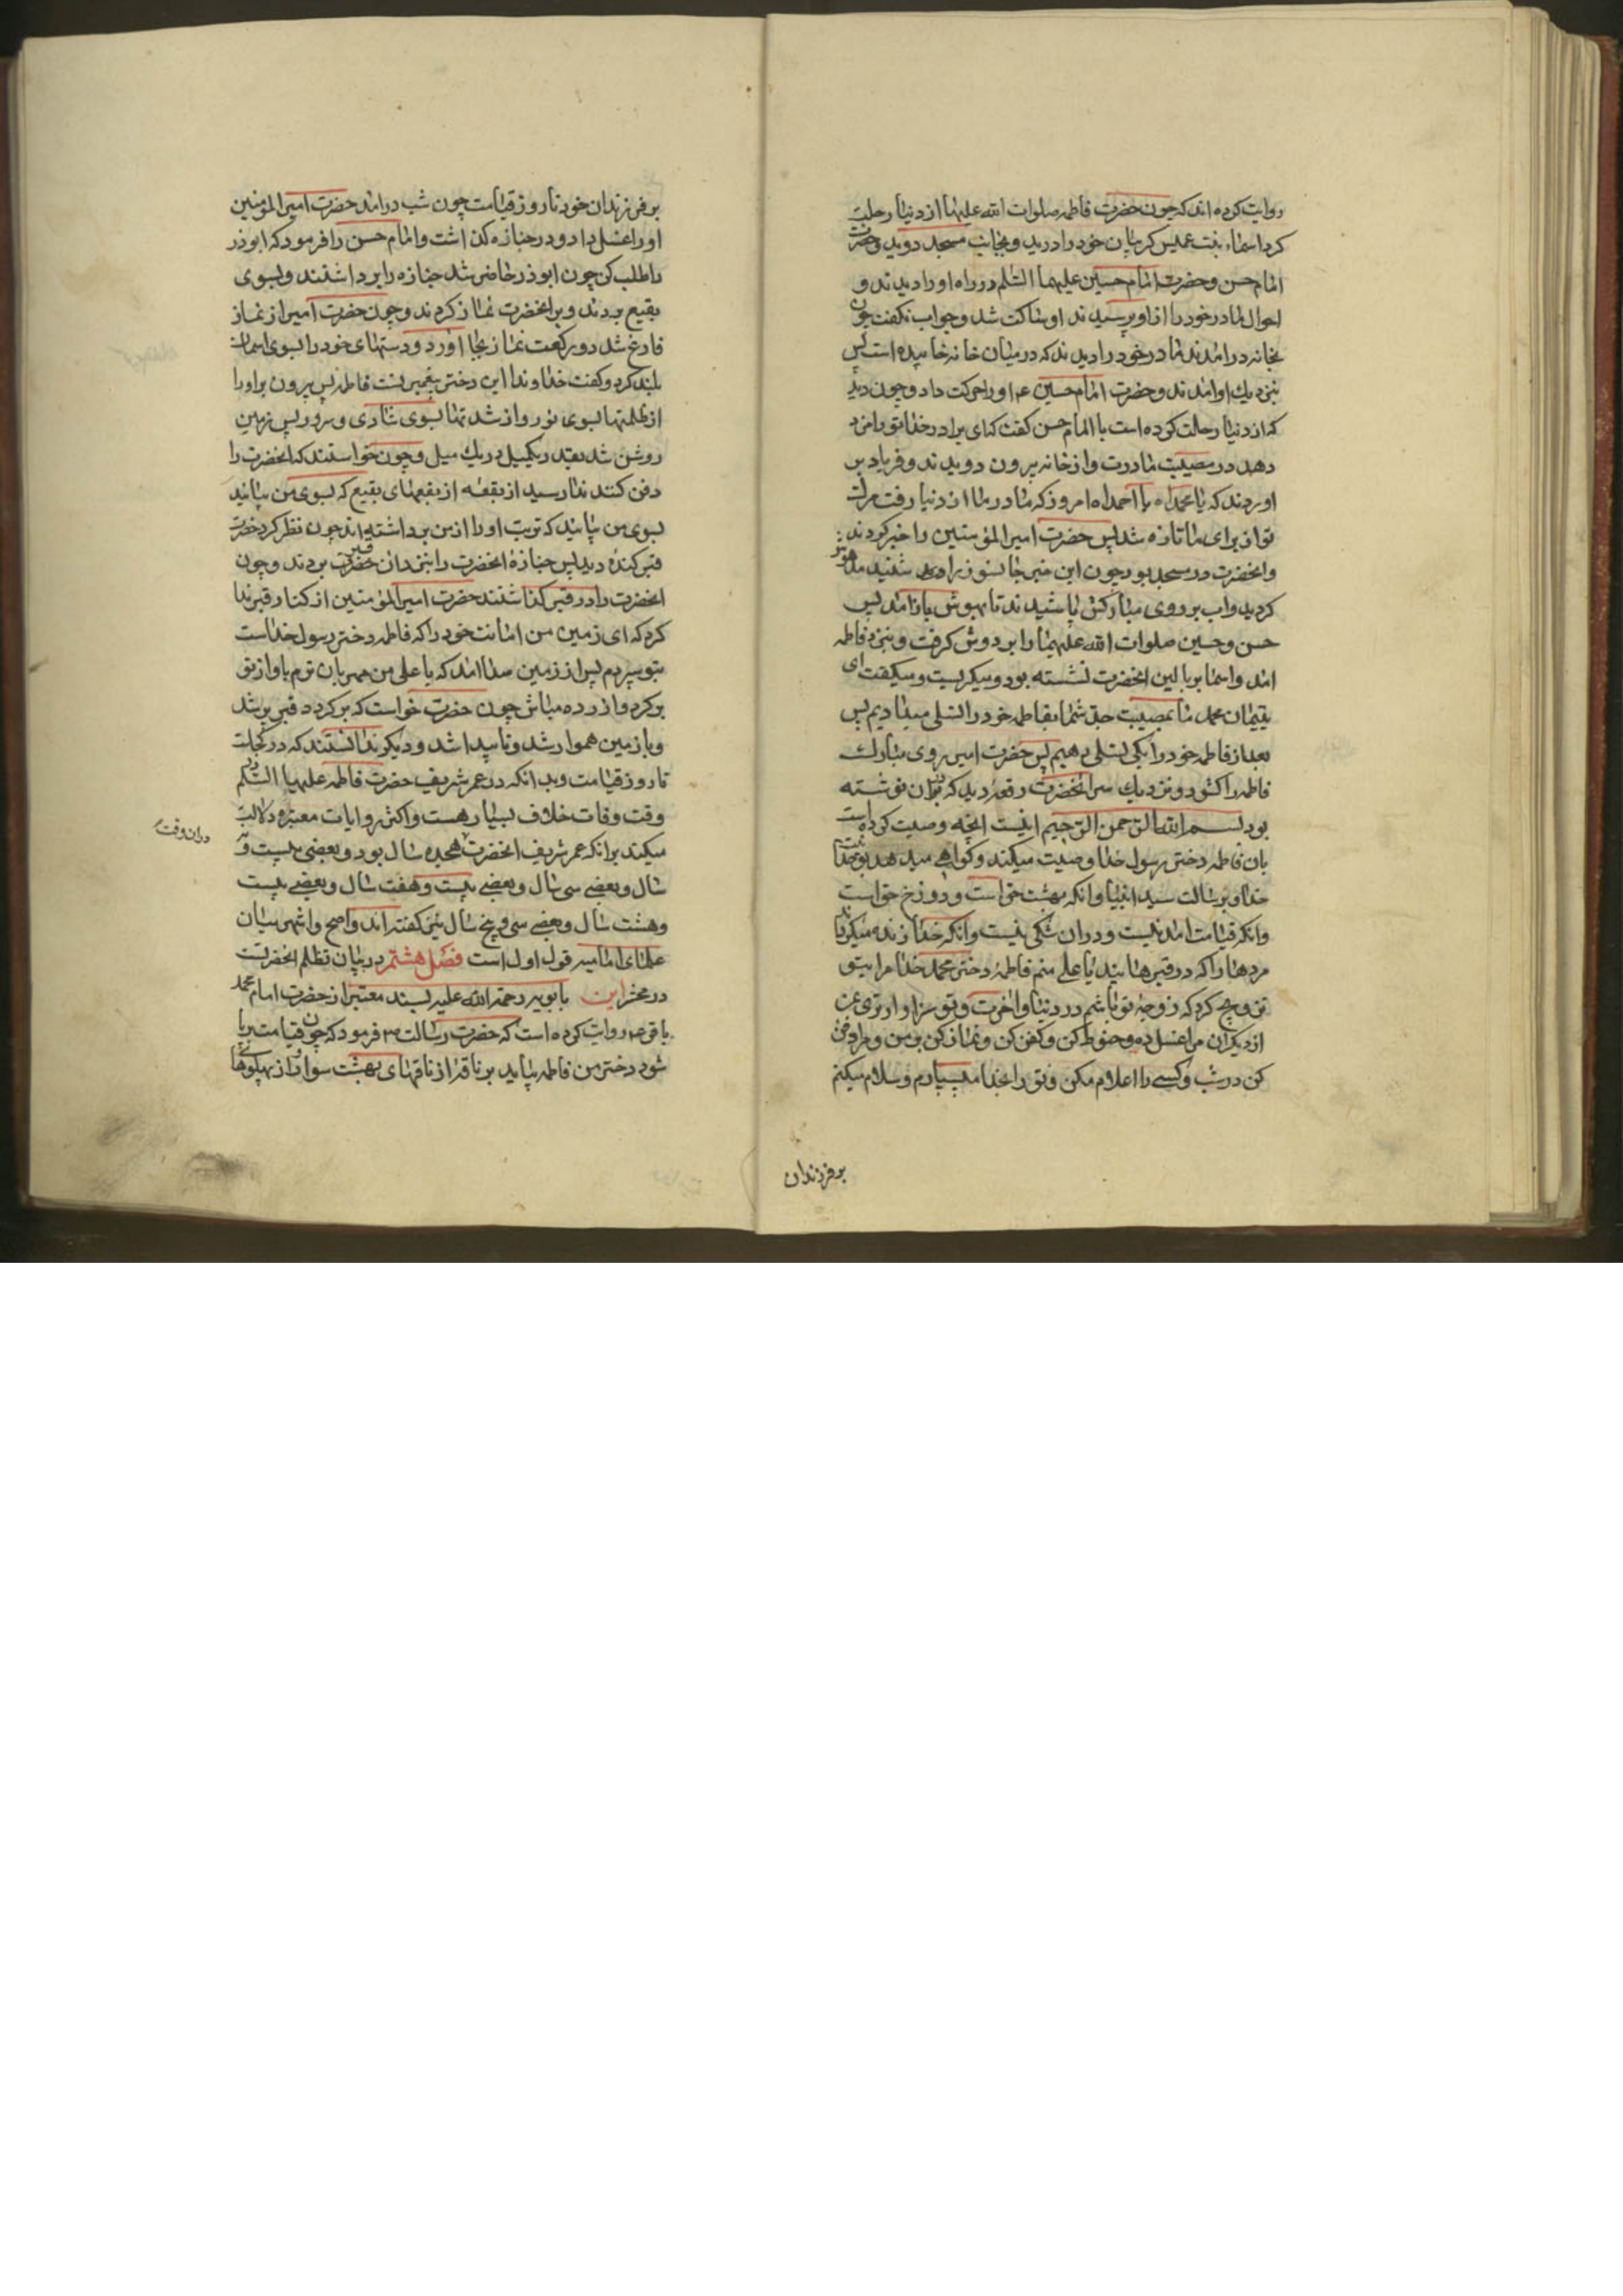 روایت کرده اند که چون حضرت فاطمه صلوات الله علیها از دنیا رحلت
کرد اسماء بنت عمیس کریبان خود را درید و بجانب مسجد دوید و حضرت
امام حسن و حضرت امام حسین علیهما السّلم در راه او را دیدند و
احوال مادر خود را از او پرسیدند او ساکت شد و جواب نکفت چون
بخانه درامدند مادر خود را دیدند که در میان خانه خابیده است پس
بنزدیك او امدند و حضرت امام حسین ع او را حرکت داد و چون دید
که از دنیا رحلت کرده است با امام حسن کفت که ای برادر خدا تو را مزد
دهد در مصیبت مادرت و از خانه بیرون دویدند و فریاد بر
اوردند که یا محمداه یا احمداه امروز که مادر ما از دنیا رفت مرك
تو از برای ما تازه شد پس حضرت امیر المؤمنین را خبر کردند
و انحضرت در مسجد بود چون این خبر جانسوز را شنید مدهوش
کردید و اب بر روی مبارکش پاشیدند تا بهوش باز امد پس
حسن و حسین صلوات الله علیهما را بر دوش کرفت و بنزد فاطمه
امد و اسما بر بالین انحضرت نشسته بود و میکریست و میکفت ای
یتیمان محمد ما بمصیبت جد شما بفاطمه خود را تسلی میدادیم پس
بعد از فاطمه خود را بکی تسلی دهیم پس حضرت امیر روی مبارك
فاطمه را کشود و نزدیك سر انحضرت رقعهٔ دید که بران نوشته
بود بسم الله الرّحمن الرّحیم اینست انچه وصیت کرده است
بان فاطمه دختر رسول خدا وصیت میکند و کواهی میدهد بوحدانیت
خدا و برسالت سید انبیا و انکه بهشت حق است و دوزخ حق است
و انکه قیامت امدنیست و در ان شکی نیست و انکه خدا زنده میکرداند
مردها را که در قبرهایند یا علی منم فاطمه دختر محمد خدا مرا بتو
تزویج کرد که زوجهٔ تو باشم در دنیا و اخرت و تو سزاوارتری بمن
از دیکران مرا غسل ده و حنوط کن و کفن کن و نماز کن بر من و مرا دفن
کن در شب و کسی را اعلام مکن و تو را بخدا میسپارم و سلام میکنم
بر فرزندان
بر فرزندان خود تا روز قیامت چون شب درامد حضرت امیر المؤمنین
او را غسل داد و در جنازه کذاشت و امام حسن را فرمود که ابوذر
را طلب کن چون ابوذر حاضر شد جنازه را برداشتند و بسوی
بقیع بردند و بر انحضرت نماز کردند و چون حضرت امیر از نماز
فارغ شد دو رکعت نماز بجا اورد و دستهای خود را بسوی اسمان
بلند کرد و کفت خداوندا این دختر پیغمبر تست فاطمه پس بیرون بر او را
از ظلمتها بسوی نور
روشن شد بقدر یکمیل در یك میل و چون خواستند که انحضرت را
دفن کنند ندا رسید از بقعه از بقعهای بقیع که بسوی من بیائید
بسوی من بیائید که تربت او را از من برداشته اند چون نظر کرد حضرت
قبر کندهٔ دید پس جنازهٔ انحضرت را بنزد ان قبر بردند و چون
انحضرت را در قبر کذاشتند حضرت امیر المؤمنین از کنار قبر ندا
کرد که ای زمین من امانت خود را که فاطمه دختر رسول خداست
بتو سپردم پس از زمین صدا امد که یا علی من مهربان ترم باو از تو
برکرد و ازرده مباش چون حضرت خواست که برکردد قبر پر شد
و با زمین هموار شد و ناپیدا شد و دیکر ندانستند که در کجاست
تا روز قیامت و بدانکه در عمر شریف حضرت فاطمه علیها السّلم در
دران وقت
وقت وفات خلاف بسیار هست و اکثر روایات معتبره دلالت
میکند بر انکه عمر شریف انحضرت هجده سال بود و بعضی بیست و
سال و بعضی سی سال و بعضی بیست و هفت سال و بعضی بیست
و هشت سال و بعضی سی و پنج سال نیز کفته اند و اصح و اشهر میان
علمای امامیه قول اول است فصل هشتم در بیان تظلم انحضرت
در محشر ابن بابویه رحمة الله علیه بسند معتبر از حضرت امام محمد
باقر ع روایت کرده است که حضرت رسالت ص فرمود که چون قیامت برپا
شود دختر من فاطمه بیاید بر ناقهٔ از ناقهای بهشت سوار و از پهلوهای